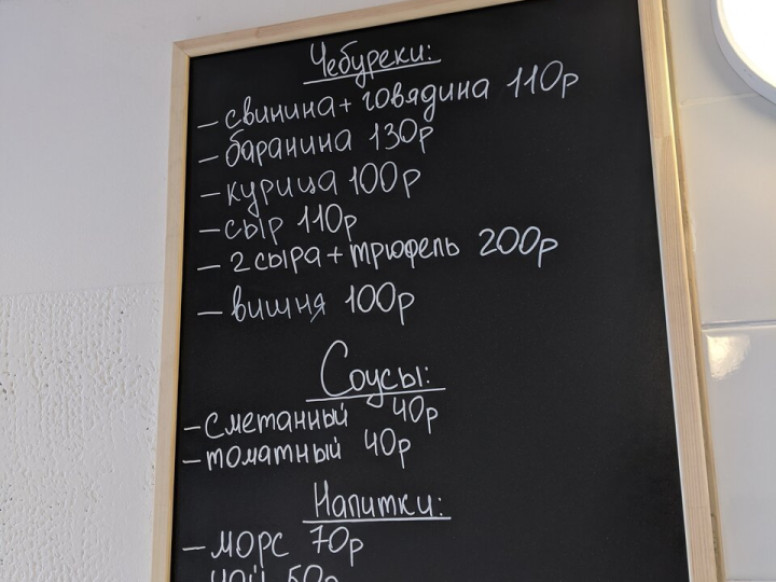 Чебуреки:
– свинина + говядина 110р
– баранина 130р
– курица 100р
– сыр 110р
– 2 сыра + трюфель 200р
– вишня 100р
Соусы:
– сметанный 40р
– томатный 40р
Напитки:
– морс 70р
чай 50р